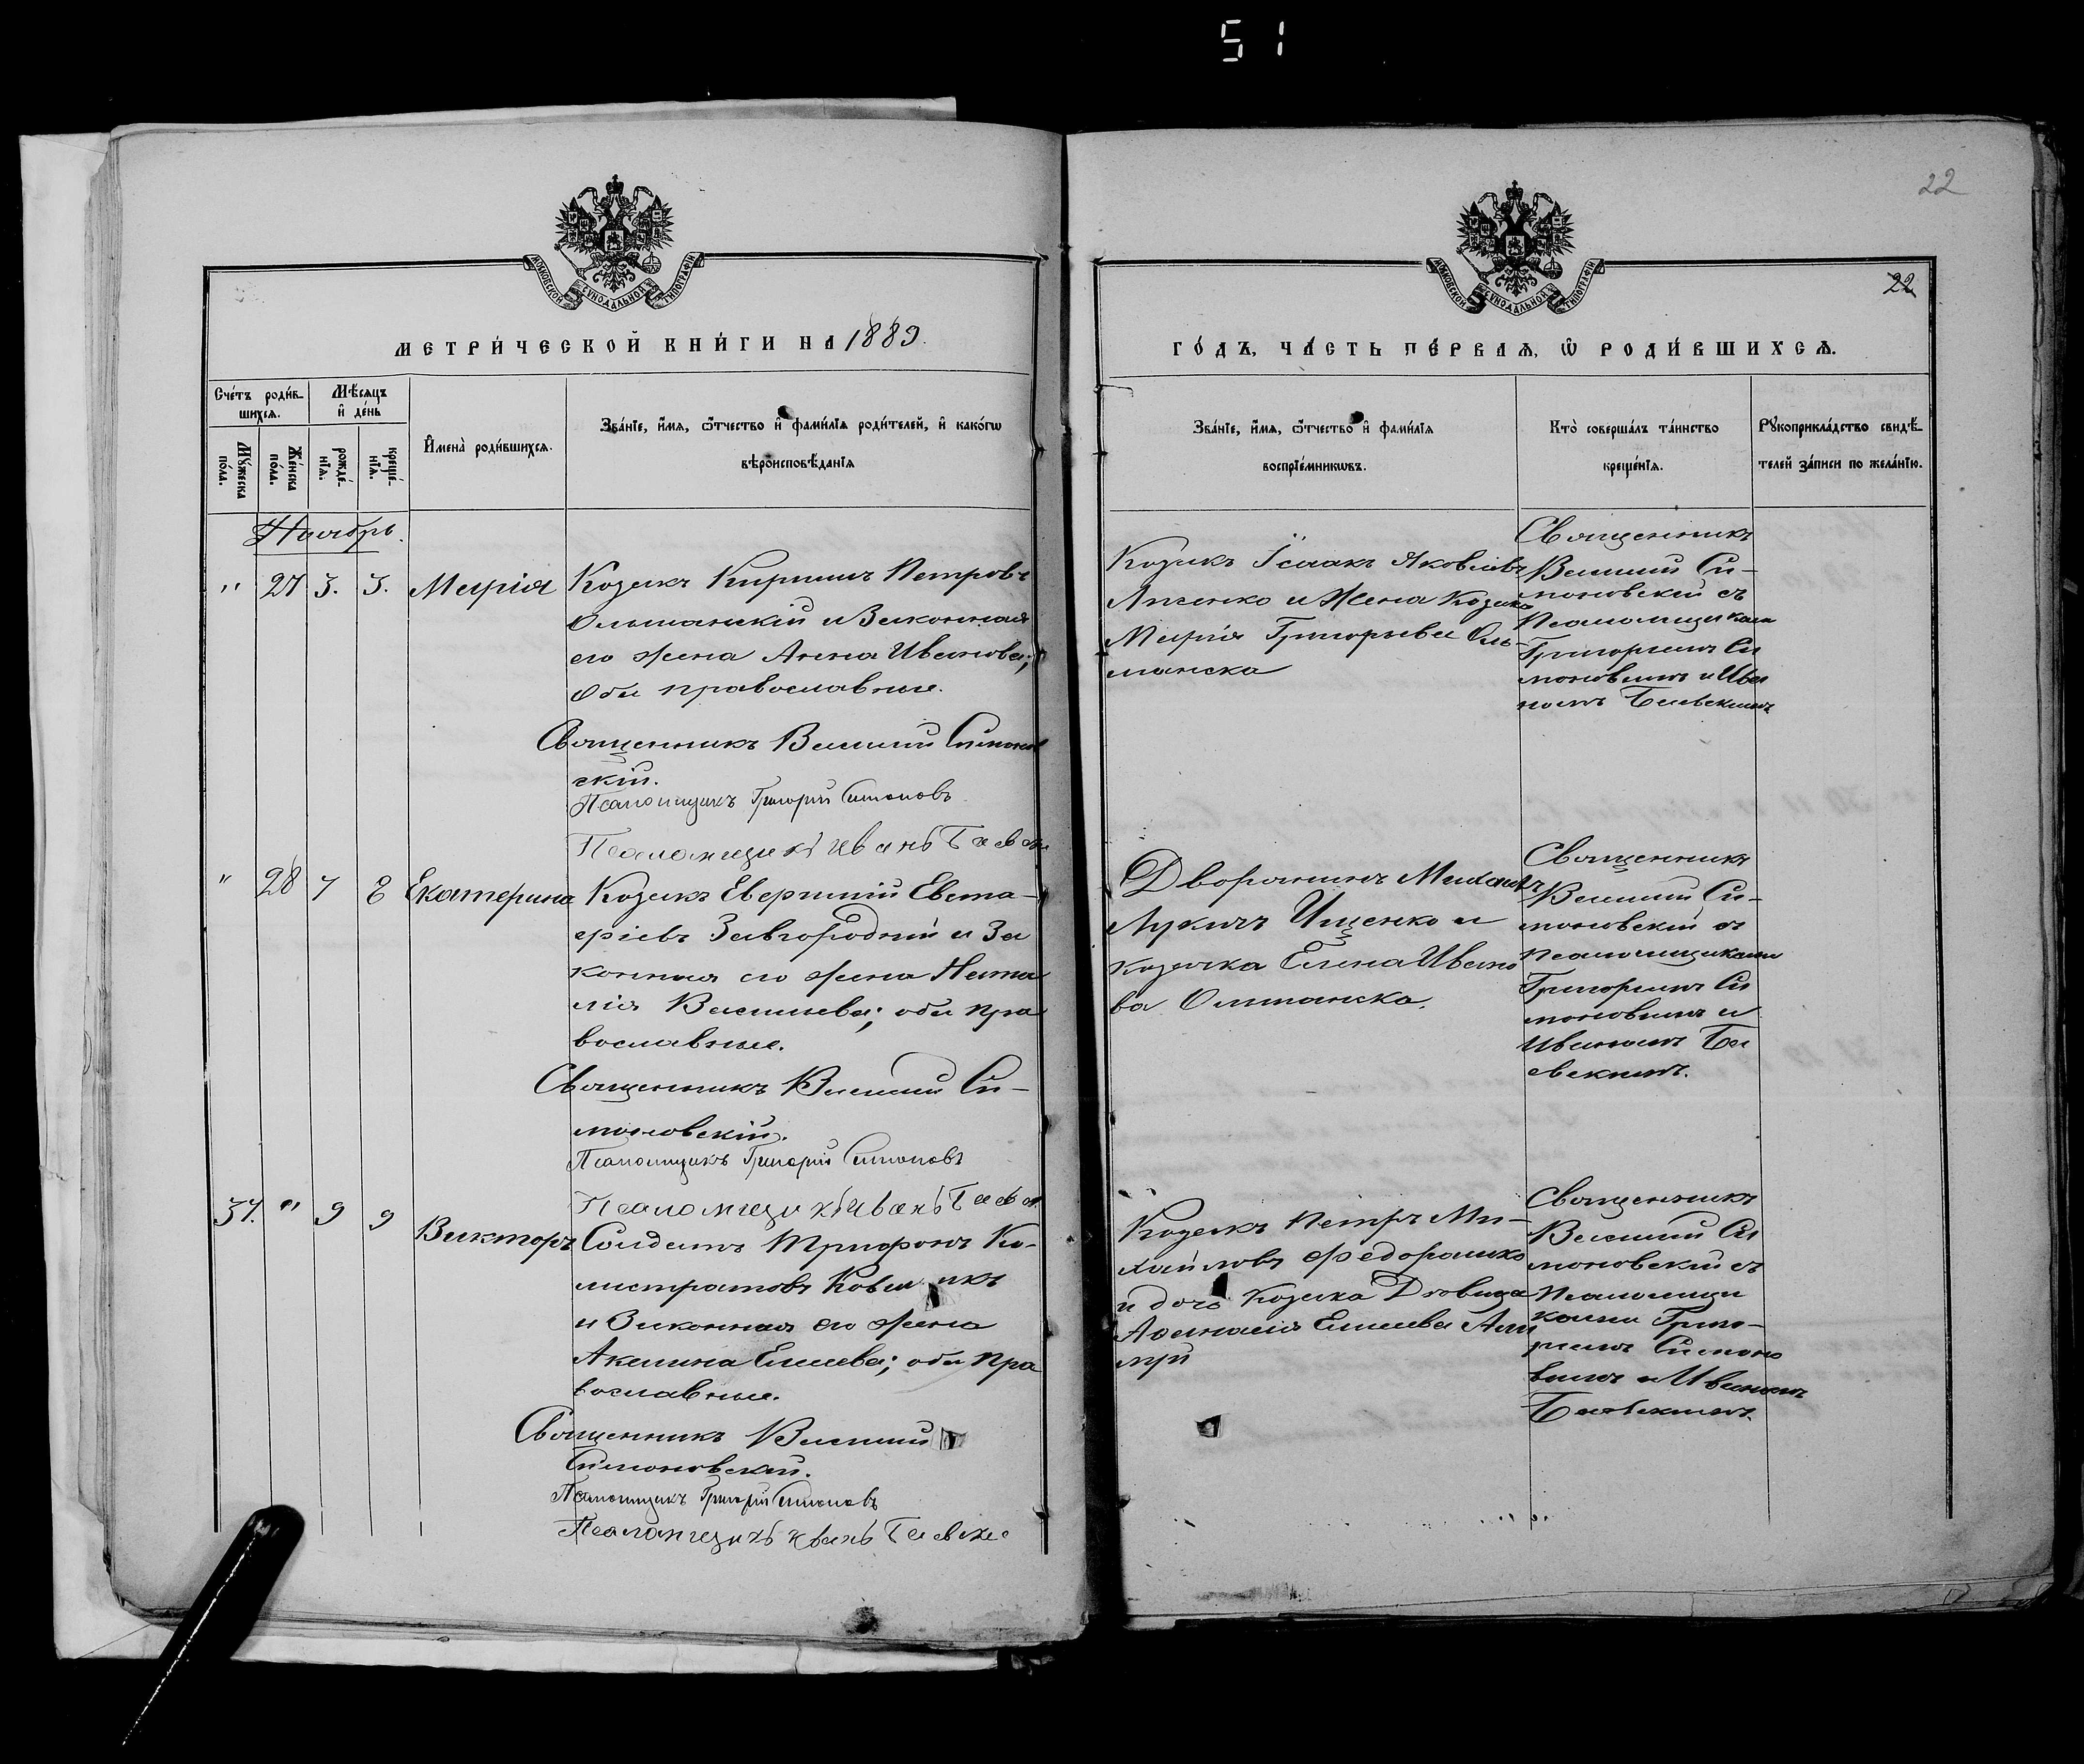 51
22
22
МОСКОВСКОЙ СѴНОДАЛЬНОЙ ТИПОГРАФІИ
МОСКОВСКОЙ СѴНОДАЛЬНОЙ ТИПОГРАФІИ
МЕТРИ́ЧЕСКОЙ КНИ́ГИ НА 1889.
ГО́ДЪ, ЧА́СТЬ ПЕ́РВАЯ, Ѡ҆ РОДИ́ВШИХСЯ.
Сче́тъ роди́в-
шихся.
Мѣ́сяцъ
и҆ де́нь
Мꙋ́жеска
по́ла.
Же́нска
по́ла.
рожде́-
нїя.
креще́-
нїя.
И҆мена̀ роди́вшихся.
Зва́нїе, и҆́мя, ѻ҆́тчество и҆ фами́лїя роди́телей, и҆ како́гѡ
вѣроисповѣ́данїя
Зва́нїе, и҆́мя, ѻ҆́тчество и҆ фами́лїя
воспрїе́мникѡвъ.
Кто̀ соверша́лъ та́инство
креще́нїя.
Рꙋкоприкла́дство свидѣ́-
телей за́писи по жела́нїю.
Ноябрь.
" 27 3. 3. Марія
Козакъ Кирилъ Петровъ
Ольшанскій и Законная
его жена Анна Иванова;
Оба православные.
Священникъ Василій Симонов
скій.
Псаломщикъ Григорій Симоновъ
Псаломщикъ Иванъ
Козакъ Ісаакъ Яковлевъ
и Жена Козака
Марія Григорьева Оль-
шанска
Священникъ
Василій Си-
моновскій съ
Псаломщиками
Григоріемъ Си
моновымъ и Ива
номъ
" 28 7 8 Екатерина
Козакъ Евфимій Евста-
фіевъ Завгородній и За
конная его жена Ната
лія Васильева; оба пра
вославные.
Священникъ Василій Си-
моновскій.
Псаломщикъ Григорій Симоновъ
Псаломщикъ Иванъ
Дворянинъ Михаилъ
Лукичъ Ищенко и
козачка Елена Ивано
ва Ольшанска.
Священникъ
Василій Си-
моновскій съ
псаломщиками
Григоріемъ Си
моновымъ и
Иваномъ
37. " 9 9 Викторъ
Солдатъ Трифонъ Ка-
листратовъ
и Законная его жена
Акилина Елисеева; оба пра
вославные.
Священникъ Василій
Симоновскій.
Псаломщикъ Григорій Симоновъ
Псаломщикъ Иванъ
Козакъ Петръ Ми-
хайловъ Федоренко
и дочь Козака Дѣвица
Афанасія Елисеева
Священникъ
Василій Си
моновскій съ
Псаломщи
ками Григо-
ріемъ Симоно
вымъ и Иваномъ